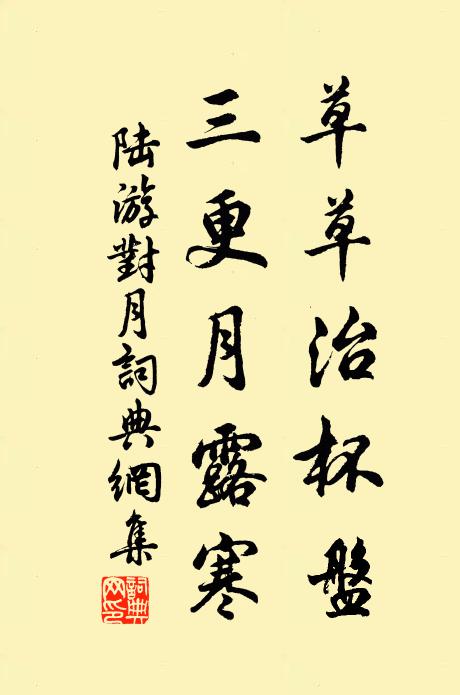 草草治杯盤
三更月露寒
陸游對月詞典網集
詞典網印